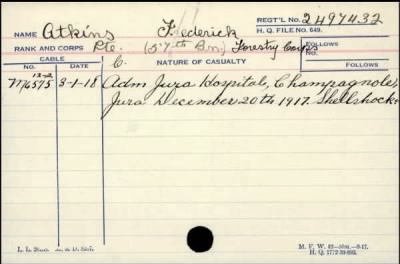 NAME Atkins Frederick REGT'L NO. 2497432
H. Q. FILE NO. 649.
RANK AND CORPS Pte. (57th Bn.) Forestry Corps FOLLOWS
CABLE C. NATURE OF CASUALTY
NO. DATE FOLLOWS
12-2
M6575 3-1-18 Adm Jura Hospital, Champagnole,
Jura December 20th 1917. Shellshock
M. F. W. 42—50M.—9-17.
H. Q. 1772-39-893.